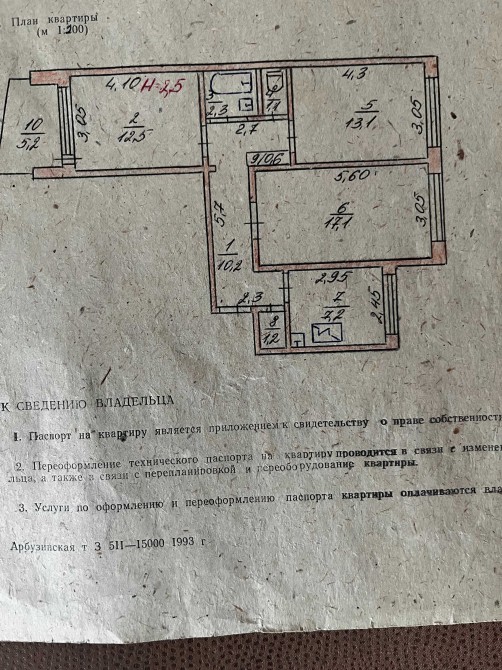 План квартиры
(м 1:200)
4,10 H=2,5
4,3
10
5,2
3,05
2
12,5
3
2,3
4
1,1
5
13,1
3,05
2,7
9/0,6
5,60
5,7
6
17,1
3,05
1
10,2
2,95
2,3
7
7,2
2,45
8
1,2
К СВЕДЕНИЮ ВЛАДЕЛЬЦА
1. Паспорт на квартиру является приложением к свидетельству о праве собственност
2. Переоформление технического паспорта на квартиру проводится в связи с изменен
льца, а также в связи с перепланировкой и переоборудование квартиры.
3. Услуги по оформлению и переоформлению паспорта квартиры оплачиваются вла
Арбузинская т З 511—15000 1993 г